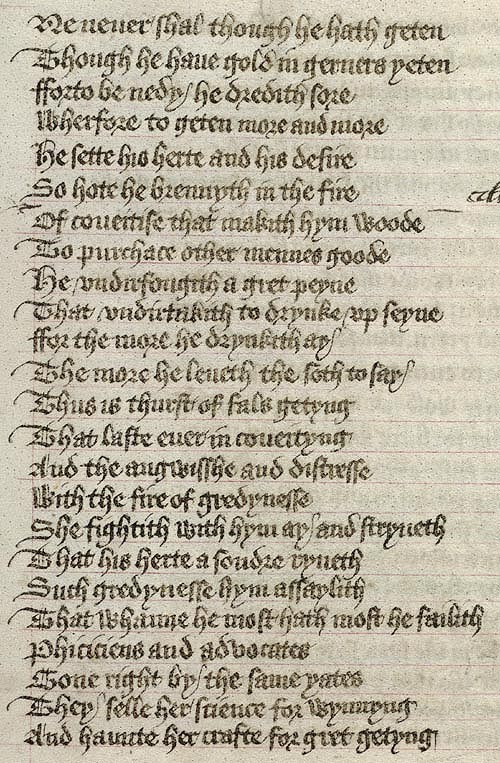 Ne neuer shal though he hath geten
Though he haue gold in gerners yeten
fforto be nedy he dredith sore
Wherfore to geten more and more
He sette his herte and his desire
So hote he brennyth in the fire
Of coueitise that makith hym woode
To purchace other mennes goode
He vndirfongith a gret peyne
That vndirtakith to drynke vp seyne
ffor the more he drynkith ay
The more he leueth the soth to say
Thus is thurst of fals getyng
That laste euer in coueityng
And the angwisshe and distresse
With the fire of gredynesse
She fightith with hym ay and stryueth
That his herte a sondre ryueth
Such gredynesse hym assaylith
That whanne he most hath most he failith
Phiciciens and advocates
Gone right by the same yates
They selle her science for wynnyng
And haunte her crafte for gret getyng